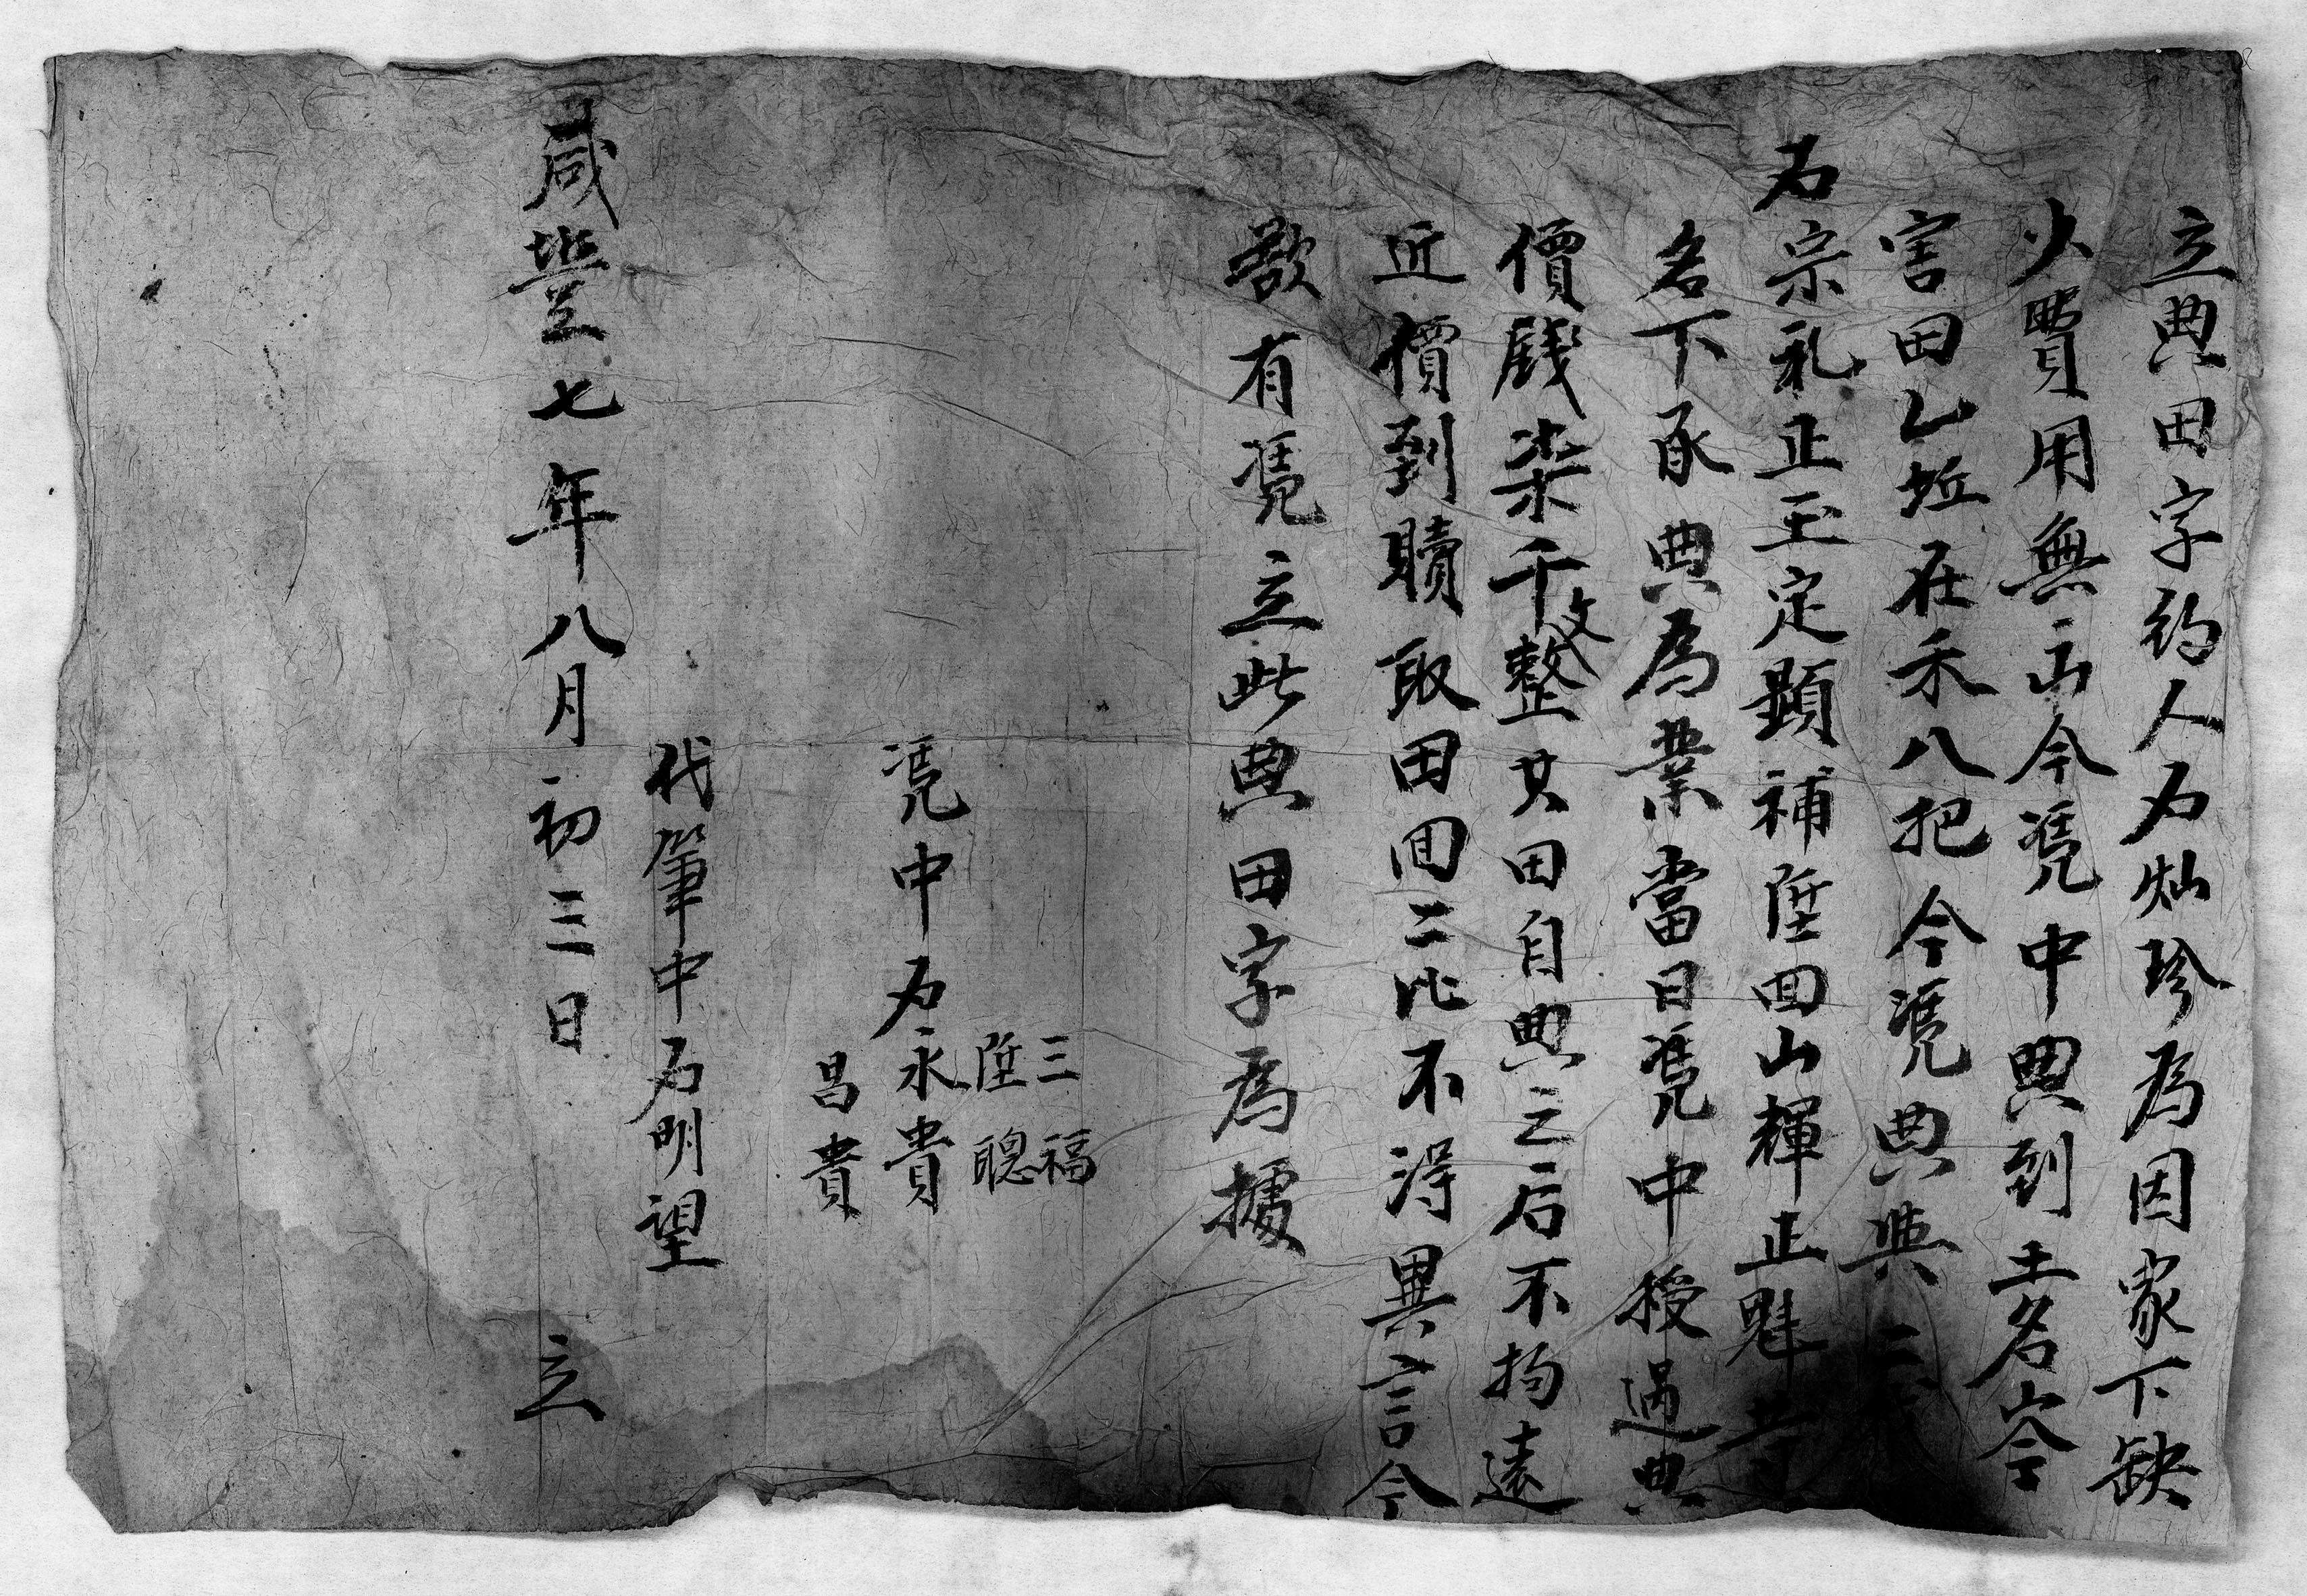 立典田字約人石灿珍為因家下缺
少費用無出今凴中典到土名岺
害田乙坵在禾八把今凴典典二家
石宗礼正玉定顕補陞囬山輝正魁等
名下承典為業當日凴中授過典
價錢柒千文整其田自典之后不拘遠
近價到贖取田囬二比不淂異言今
欲有凴立此典田字為據
三福
陞聰
凴中石永貴
昌貴
代筆中石明望
咸豐七年八月初三日 立